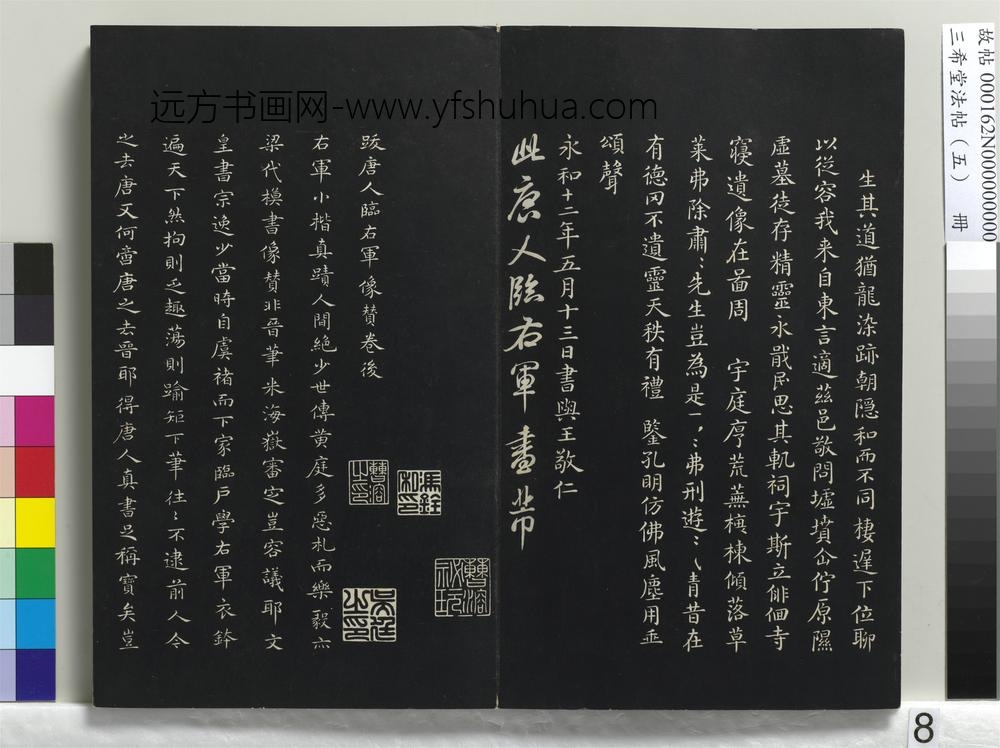 生其道猶龍染跡朝隠和而不同棲遲下位聊
以從容我来自東言適茲邑敬問墟墳企佇原隰
虛墓徒存精靈永戢民思其軌祠宇斯立俳佪寺
寝遺像在畵周 宇庭序荒蕪榱棟傾落草
莱弗除肅〻先生豈為是一〻弗刑遊〻〵青昔在
有德罔不遺靈天秩有禮 鑒孔明仿佛風塵用垂
頌聲
永和十二年五月十三日書與王敬仁
此唐人臨右軍畫
跋唐人臨右軍像贊卷後
右軍小楷真蹟人間絶少世傳黄庭多惡札而樂毅亦
梁代模書像贊非晉筆米海嶽審定豈容議耶文
皇書宗逸少當時自虞褚而下家臨戶學右軍衣鉢
遍天下然拘則乏趣蕩則踰矩下筆往〻不逮前人今
之去唐又何啻唐之去晉耶得唐人真書足稱寶矣豈
曹溶之印
馮銓私印
曹溶祕玩
吳廷之印
远方书画网-www.yfshuhua.com
故帖 000162N000000000
三希堂法帖（五） 冊
8